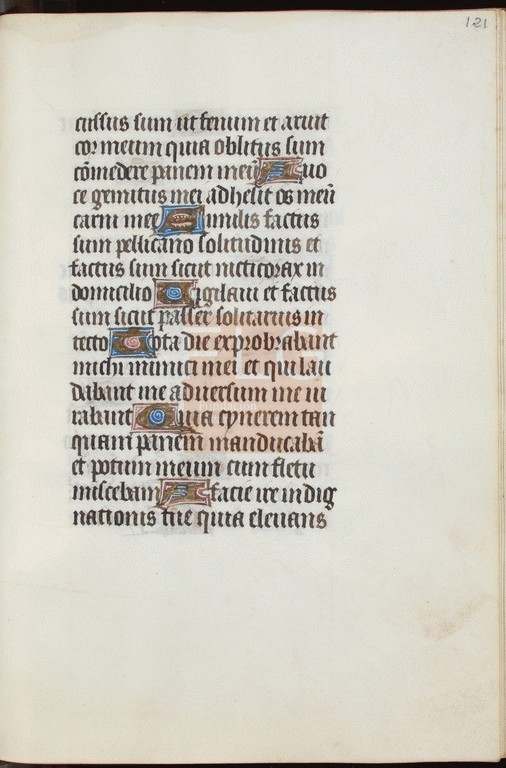 121
cussus sum ut fenum et aruit
cor meum quia oblitus sum
cōmedere panem meū A uo
ce gemitus mei adhesit os meū
carni mee S imilis factus
sum pellicano solitudinis et
factus sum sicut nicticorax in
domicilio V igilaui et factus
sum sicut passer solitarius in
tecto T ota die exprobrabant
michi inimici mei et qui lau
dabant me aduersum me iu
rabant Q uia cynerem tan
quam panem manducabā
et potum meum cum fletu
miscebam A facie ire indig
nationis tue quia eleuans